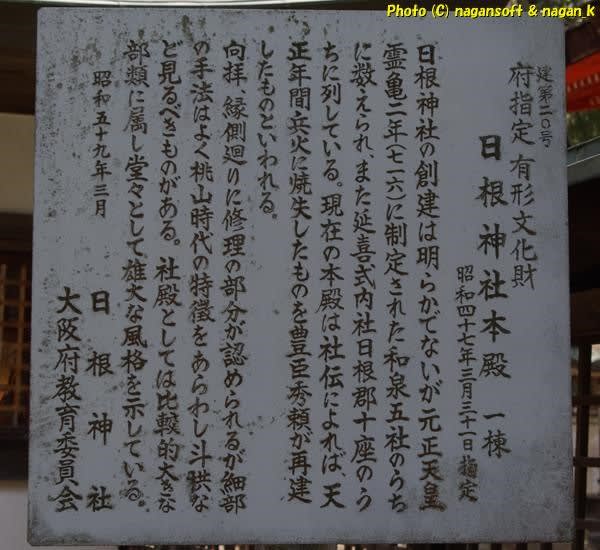 Photo (C) nagansoft & nagan_k
建第二〇号
府指定 有形文化財
日根神社本殿 一棟
昭和四十七年三月三十一日指定
日根神社の創建は明らかでないが元正天皇
霊亀二年(七一六)に制定された和泉五社のうち
に数えられ、また延喜式内社日根郡十座のう
ちに列している。現在の本殿は社伝によれば、天
正年間兵火に焼失したものを豊臣秀頼が再建
したものといわれる。
向拝、縁側廻りに修理の部分が認められるが細部
の手法はよく桃山時代の特徴をあらわし斗拱な
ど見るべきものがある。社殿としては比較的大きな
部類に属し堂々として雄大な風格を示している。
昭和五十九年三月
日根神社
大阪府教育委員会